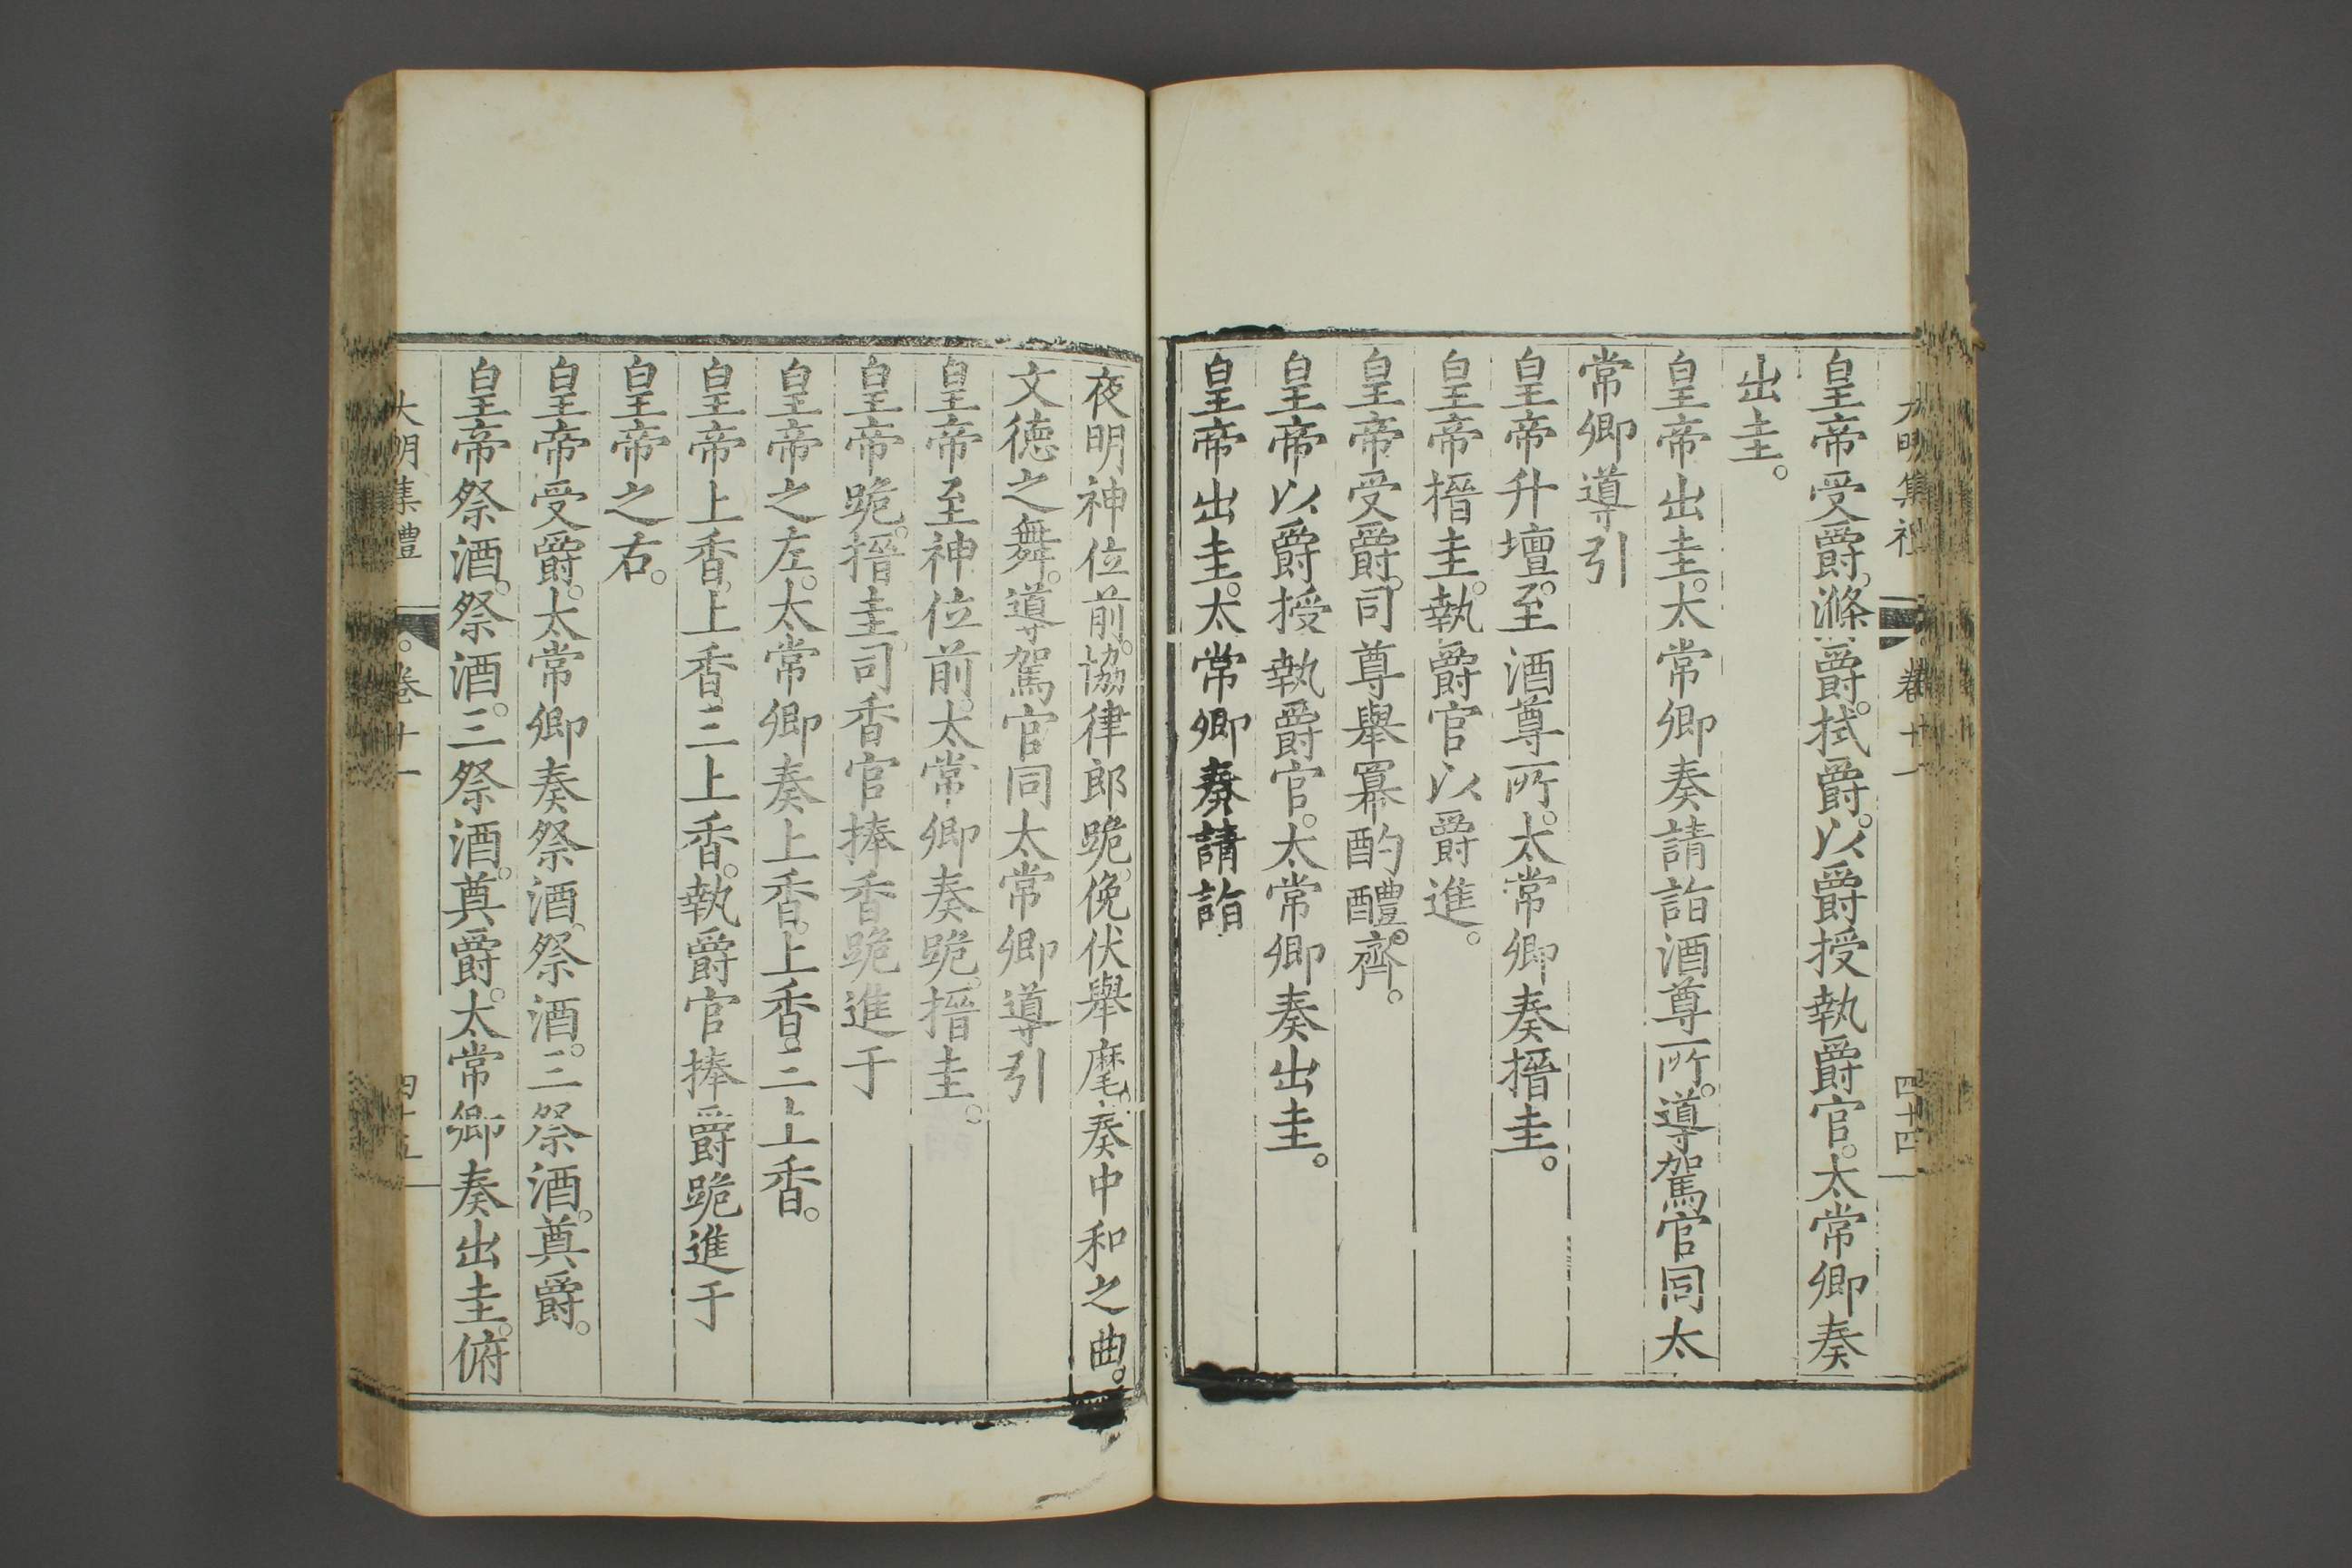 大明集禮
卷十一
四十四
皇帝受爵。滌爵。拭爵。以爵授執爵官。太常卿奏
出圭。
皇帝出圭。太常卿奏請詣酒尊所。導駕官同太
常卿導引
皇帝升壇。至酒尊所。太常卿奏搢圭。
皇帝搢圭。執爵官以爵進。
皇帝受爵。司尊舉冪酌醴。齊。
皇帝以爵授執爵官。太常卿奏出圭。
皇帝出圭。太常卿奏請詣
夜明神位前。協律郎跪。俛伏舉麾。奏中和之曲。
文德之舞。導駕官同太常卿導引
皇帝至神位前。太常卿奏跪。搢圭。
皇帝跪。搢圭。司香官捧香跪進于
皇帝之左。太常卿奏上香。上香。三上香。
皇帝上香。上香。三上香。執爵官捧爵跪進于
皇帝之右。
皇帝受爵。太常卿奏祭酒。祭酒。三祭酒。奠爵。
皇帝祭酒。祭酒。三祭酒。奠爵。太常卿奏出圭。俯
大明集禮
卷十一
四十五